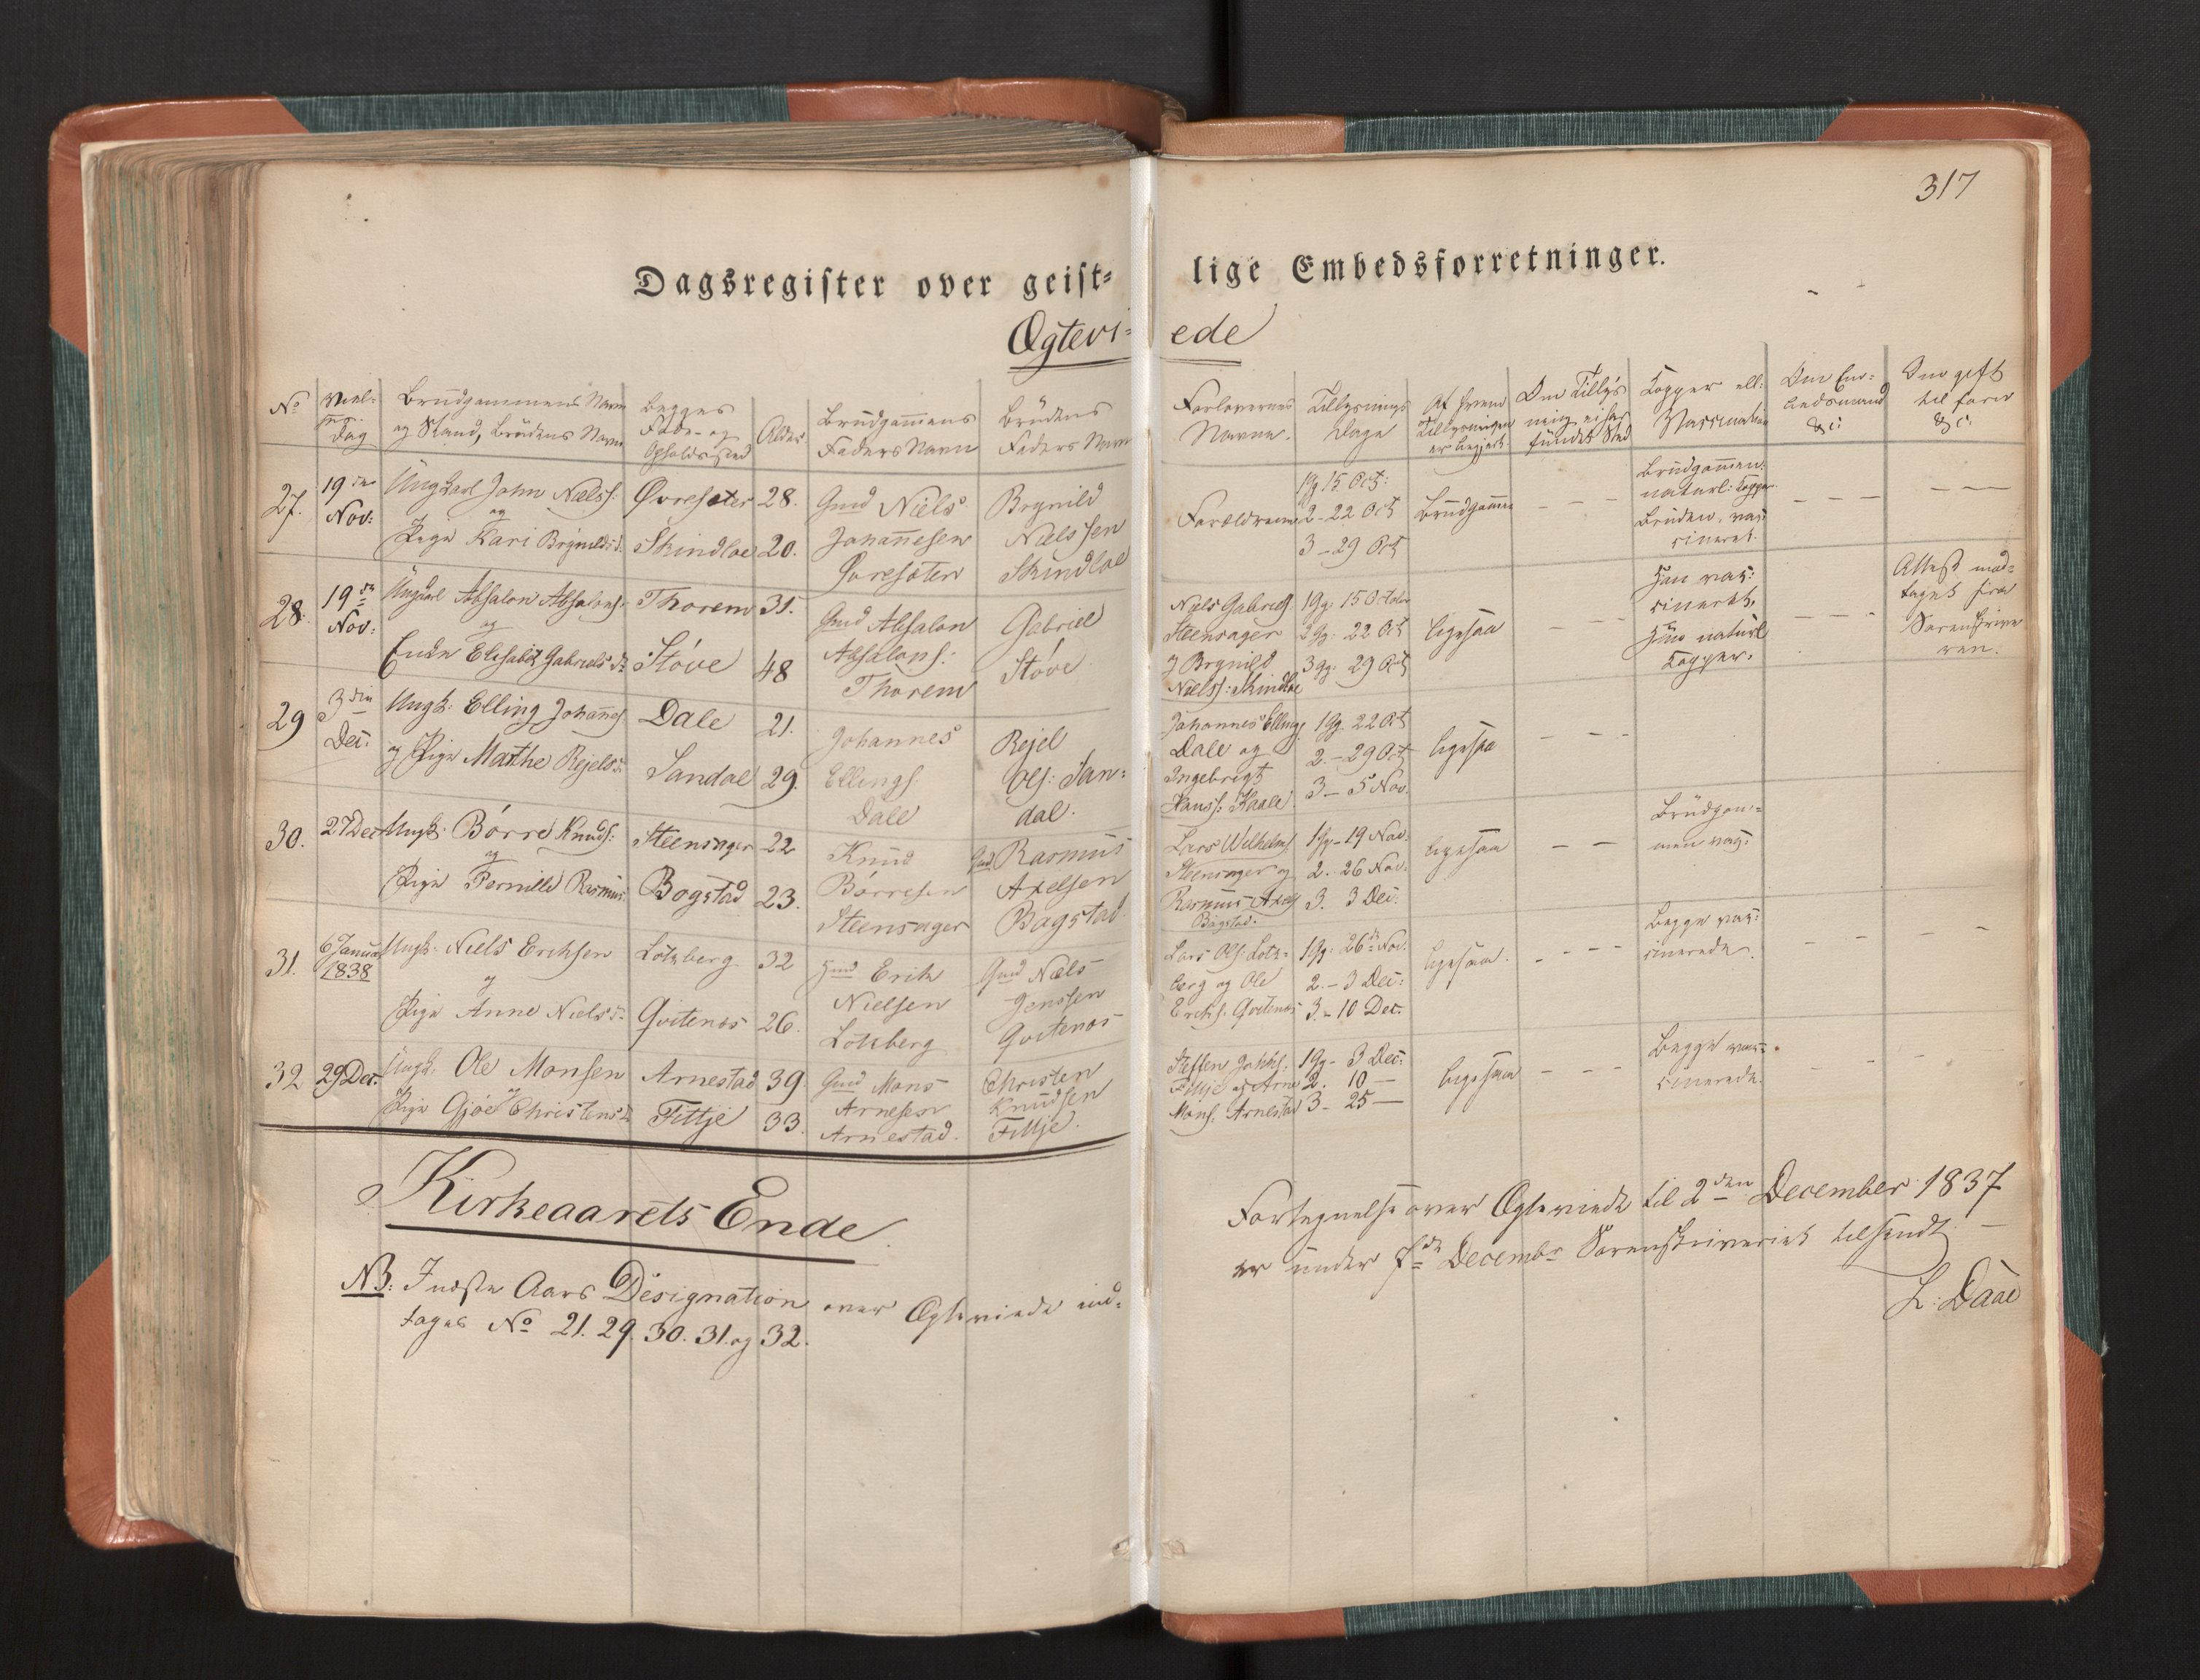 317
Dagsregister over geist-
lige Embedsforretninger.
Ægtevi-
ede
No
Viel-
dag
Brudgommens Navn
og Stand, Brudens Navn
Begges
Føde- og
Opholdssted
Alder
Brudgom̄ens
Faders Navn
Brudens
Faders Navn
Forlovernes
Navne.
Tillysnings
Dage
Af hvem
Tillysningen
er begjert
Om Tillys
ning ei har
fundet Sted
Kopper ell:
Vaccination
Om Enr-
ledsmand
&c:
Om gift
til forn
&c:
27.
19de
Nov:
Ungkarl John Nælss:
og
Pige Kari Brynilds d.
Øvresæter
Skindloe
28.
20.
Gmd Niels
Johan̄esen
Øvresæter
Brynild
Nælssen
Skindloe
Forældrene
1g 15 Oct:
2 - 22 Oct
3 - 29 Oct
Brudgom̄en
Brudgom̄en
naturl: Kopper
Bruden, vac
cineret.
28.
19de
Nov:
Ungkarl Absalon Absalons:
og
Enke Elisabet Gabriels d:
Thorem
Støve
31.
48
Gmd Absalon
Absalons:
Thorem
Gabriel
Støve
Niels Gabriels.
Steensager
og Brynild
Nælss: Skindloe
1g. 15 October
2g. 22 Oct
3g. 29 Oct
ligesaa
Han vac:
cineret,
Hun naturl
Kopper.
Attest mod-
taget fra
Sorenskrive
ren.
29
3die
Dec:
Ungk: Elling Johan̄es
og Pige Marthe Rejelsd:
Dale
Sandal
21.
29.
Johannes
Ellings
Dale
Rejel
Ols: San-
dal.
Johannes Ellings
Dale og
Ingebrigt
Hanss: Kaale
1g. 22 Oct
2. - 29 Oct
3 - 5 Nov.
ligesaa
30.
27 Dec
Ungk: Børre Knuds:
og
Pige Pernille Rasmus.
Steensager
Bogstad
22
23.
Knud
Børresen
Steensager
Gmd Rasmus
Axelsen
Bagstad.
Lars Wilhelms
Steensager og
Rasmus Axels
Bogstad.
1g - 19 Nov.
2. - 26 Nov.
3. 3 Dec.
ligesaa
Brudgom-
men vac:
31.
6 Januar
1838
Ungk. Niels Eriksen
og
Pige Anne Nielsd:
Lotsberg
Qvitenes
32
26.
Gmd Erik
Nielsen
Lotsberg
Gmd Næls
Jenssen
Qvitenes
Lars Ols. Lots-
berg og Ole
Eriks. Qvitenes
1g. 26de Nov.
2. - 3 Dec:
3. - 10 Dec.
ligesaa.
Begge vac:
cinerede.
32
29 Dec.
Ungk. Ole Monsen
og
Pige Gjøe Christens d:
Arnestad
Fittje
39.
33.
Gmd Mons
Arnesen
Arnestad.
Christen
Knudsen
Fittje.
Steffen Johns.
Fittje og Arne
Mons. Arnestad
1g - 3 Dec:
2. 10 —
3 - 25 —
ligesaa
Begge vac:
cinerede.
Kirkeaarets Ende.
NB: I næste Aars Designation over Ægteviede ind-
tages No 21. 29. 30. 31. og 32.
Fortegnelse over Ægteviede til 2den December 1837
er under 7de Decembr Sorenskriveriet tilsendt. —
L: Daae